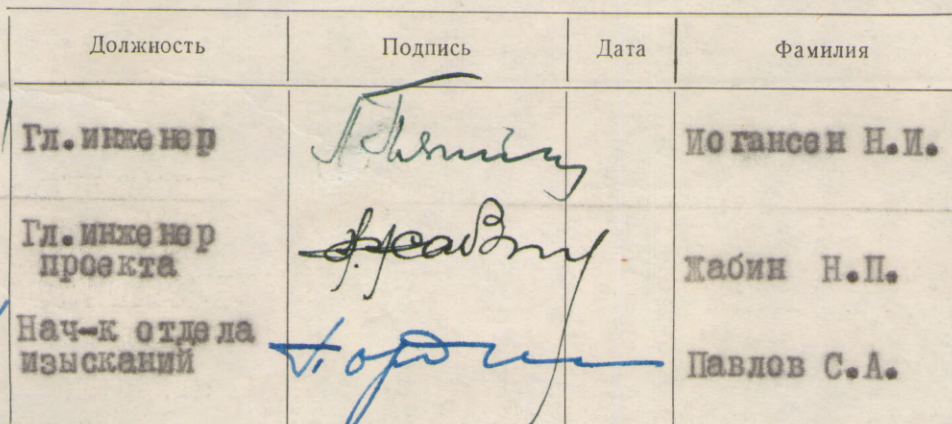 Должность Подпись Дата Фамилия
Гл.инженер Иогансен Н.И.
Гл.инженер
проекта Жабин Н.П.
Нач-к отдела
изысканий Павлов С.А.